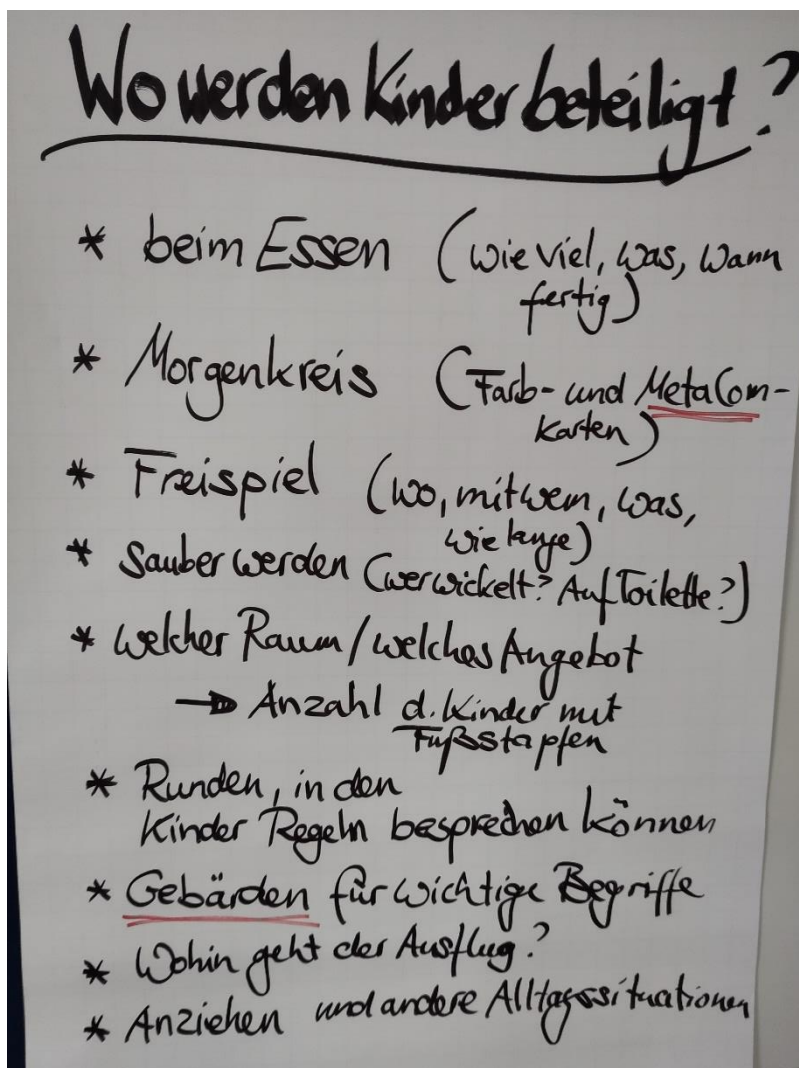 Wo werden Kinder beteiligt?
* beim Essen (wie viel, was, wann
fertig)
* Morgenkreis (Farb- und MetaCom-
karten)
* Freispiel (wo, mit wem, was,
wie lange)
* Sauber werden (wer wickelt? Auf Toilette?)
* welcher Raum / welches Angebot
→ Anzahl d. Kinder mit
Fußstapfen
* Runden, in den
Kinder Regeln besprechen können
* Gebärden für wichtige Begriffe
* Wohin geht der Ausflug?
* Anziehen und andere Alltagssituationen